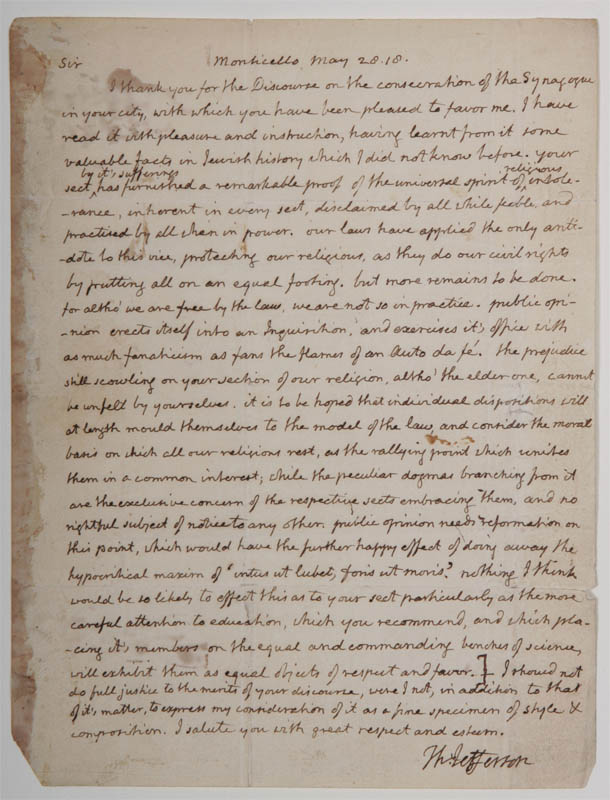 Sir Monticello May 28. 18.
I thank you for the Discourse on the consecration of the Synagogue
in your city, with which you have been pleased to favor me. I have
read it with pleasure and instruction, having learnt from it some
valuable facts in Jewish history which I did not know before. your
by it's sufferings religious
sect, has furnished a remarkable proof of the universal spirit of, intole-
-rance, inherent in every sect, disclaimed by all while feeble, and
practised by all when in power. our laws have applied the only anti-
-dote to this vice, protecting our religious, as they do our civil rights
by putting all on an equal footing. but more remains to be done.
for altho' we are free by the law, we are not so in practice. public opi-
-nion erects itself into an Inquisition, and exercises it's office with
as much fanaticism as fans the flames of an Auto da fé. the prejudice
still scowling on your section of our religion, altho' the elder one, cannot
be unfelt by yourselves. it is to be hoped that individual dispositions will
at length mould themselves to the model of the law, and consider the moral
basis on which all our religions rest, as the rallying point which unites
them in a common interest; while the peculiar dogmas branching from it
are the exclusive concern of the respective sects embracing them, and no
rightful subject of notice to any other. public opinion needs reformation on
this point, which would have the further happy effect of doing away the
hypocritical maxim of 'intus ut lubet, foris ut moris'. nothing I think
would be so likely to effect this as to your sect particularly as the more
careful attention to education, which you recommend, and which pla-
-cing it's members on the equal and commanding benches of science,
will exhibit them as equal objects of respect and favor.] I should not
do full justice to the merits of your discourse, were I not, in addition to that
of it's matter, to express my consideration of it as a fine specimen of style &
composition. I salute you with great respect and esteem.
Th: Jefferson